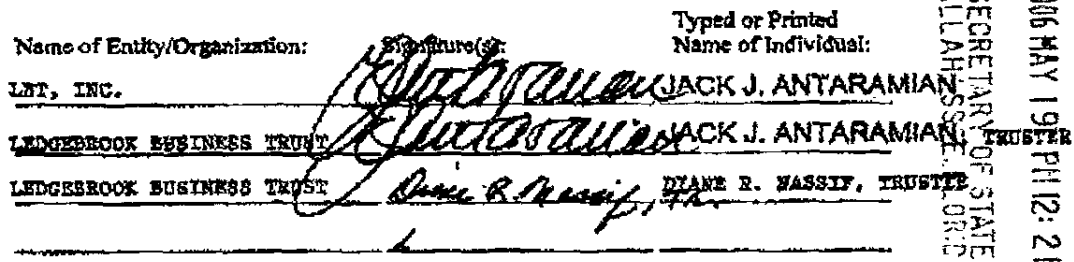 Typed or Printed
Name of Entity/Organization: Signature(s): Name of Individual:
LBT, INC. JACK J. ANTARAMIAN
LEDGEBROOK BUSINESS TRUST JACK J. ANTARAMIAN, TRUSTEE
LEDGEBROOK BUSINESS TRUST Diane R. Nassif, Tr. DIANE R. NASSIF, TRUSTEE
006 MAY 19 PM 12: 2
SECRETARY OF STATE
ALLAHASSEE. LORID